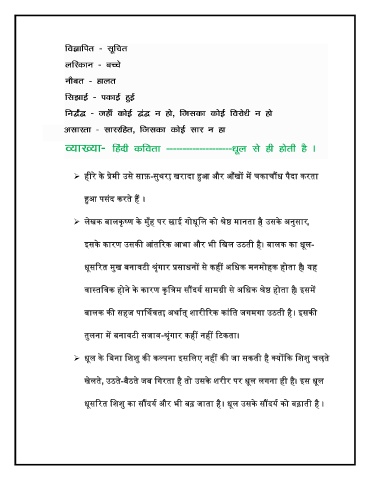 विज्ञापित - सूचित
लरिकान - बच्चे
नौबत - हालत
सिझाई - पकाई हुई
निर्द्वंद्व - जहाँ कोई द्वंद्व न हो, जिसका कोई विरोधी न हो
असारता - साररहित, जिसका कोई सार न हा
व्याख्या- हिंदी कविता ---------------------धूल से ही होती है ।
➢ हीरे के प्रेमी उसे साफ़-सुथरा, खरादा हुआ और आँखों में चकाचौंध पैदा करता
हुआ पसंद करते हैं ।
➢ लेखक बालकृष्ण के मुँह पर छाई गोधूलि को श्रेष्ठ मानता है। उसके अनुसार,
इसके कारण उसकी आंतरिक आभा और भी खिल उठती है। बालक का धूल-
धूसरित मुख बनावटी शृंगार प्रसाधनों से कहीं अधिक मनमोहक होता है। यह
वास्तविक होने के कारण कृत्रिम सौंदर्य सामग्री से अधिक श्रेष्ठ होता है। इसमें
बालक की सहज पार्थिवता, अर्थात् शारीरिक कांति जगमगा उठती है। इसकी
तुलना में बनावटी सजाव-शृंगार कहीं नहीं टिकता।
➢ धूल के बिना शिशु की कल्पना इसलिए नहीं की जा सकती है क्योंकि शिशु चलते
खेलते, उठते-बैठते जब गिरता है तो उसके शरीर पर धूल लगना ही है। इस धूल
धूसरित शिशु का सौंदर्य और भी बढ़ जाता है। धूल उसके सौंदर्य को बढ़ाती है ।